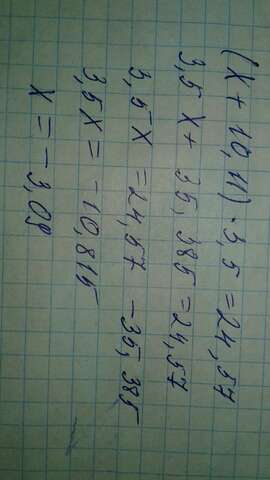 (x + 10,11) · 3,5 = 24,57
3,5 x + 35,385 = 24,57
3,5 x = 24,57 - 35,385
3,5 x = -10,815
x = -3,09